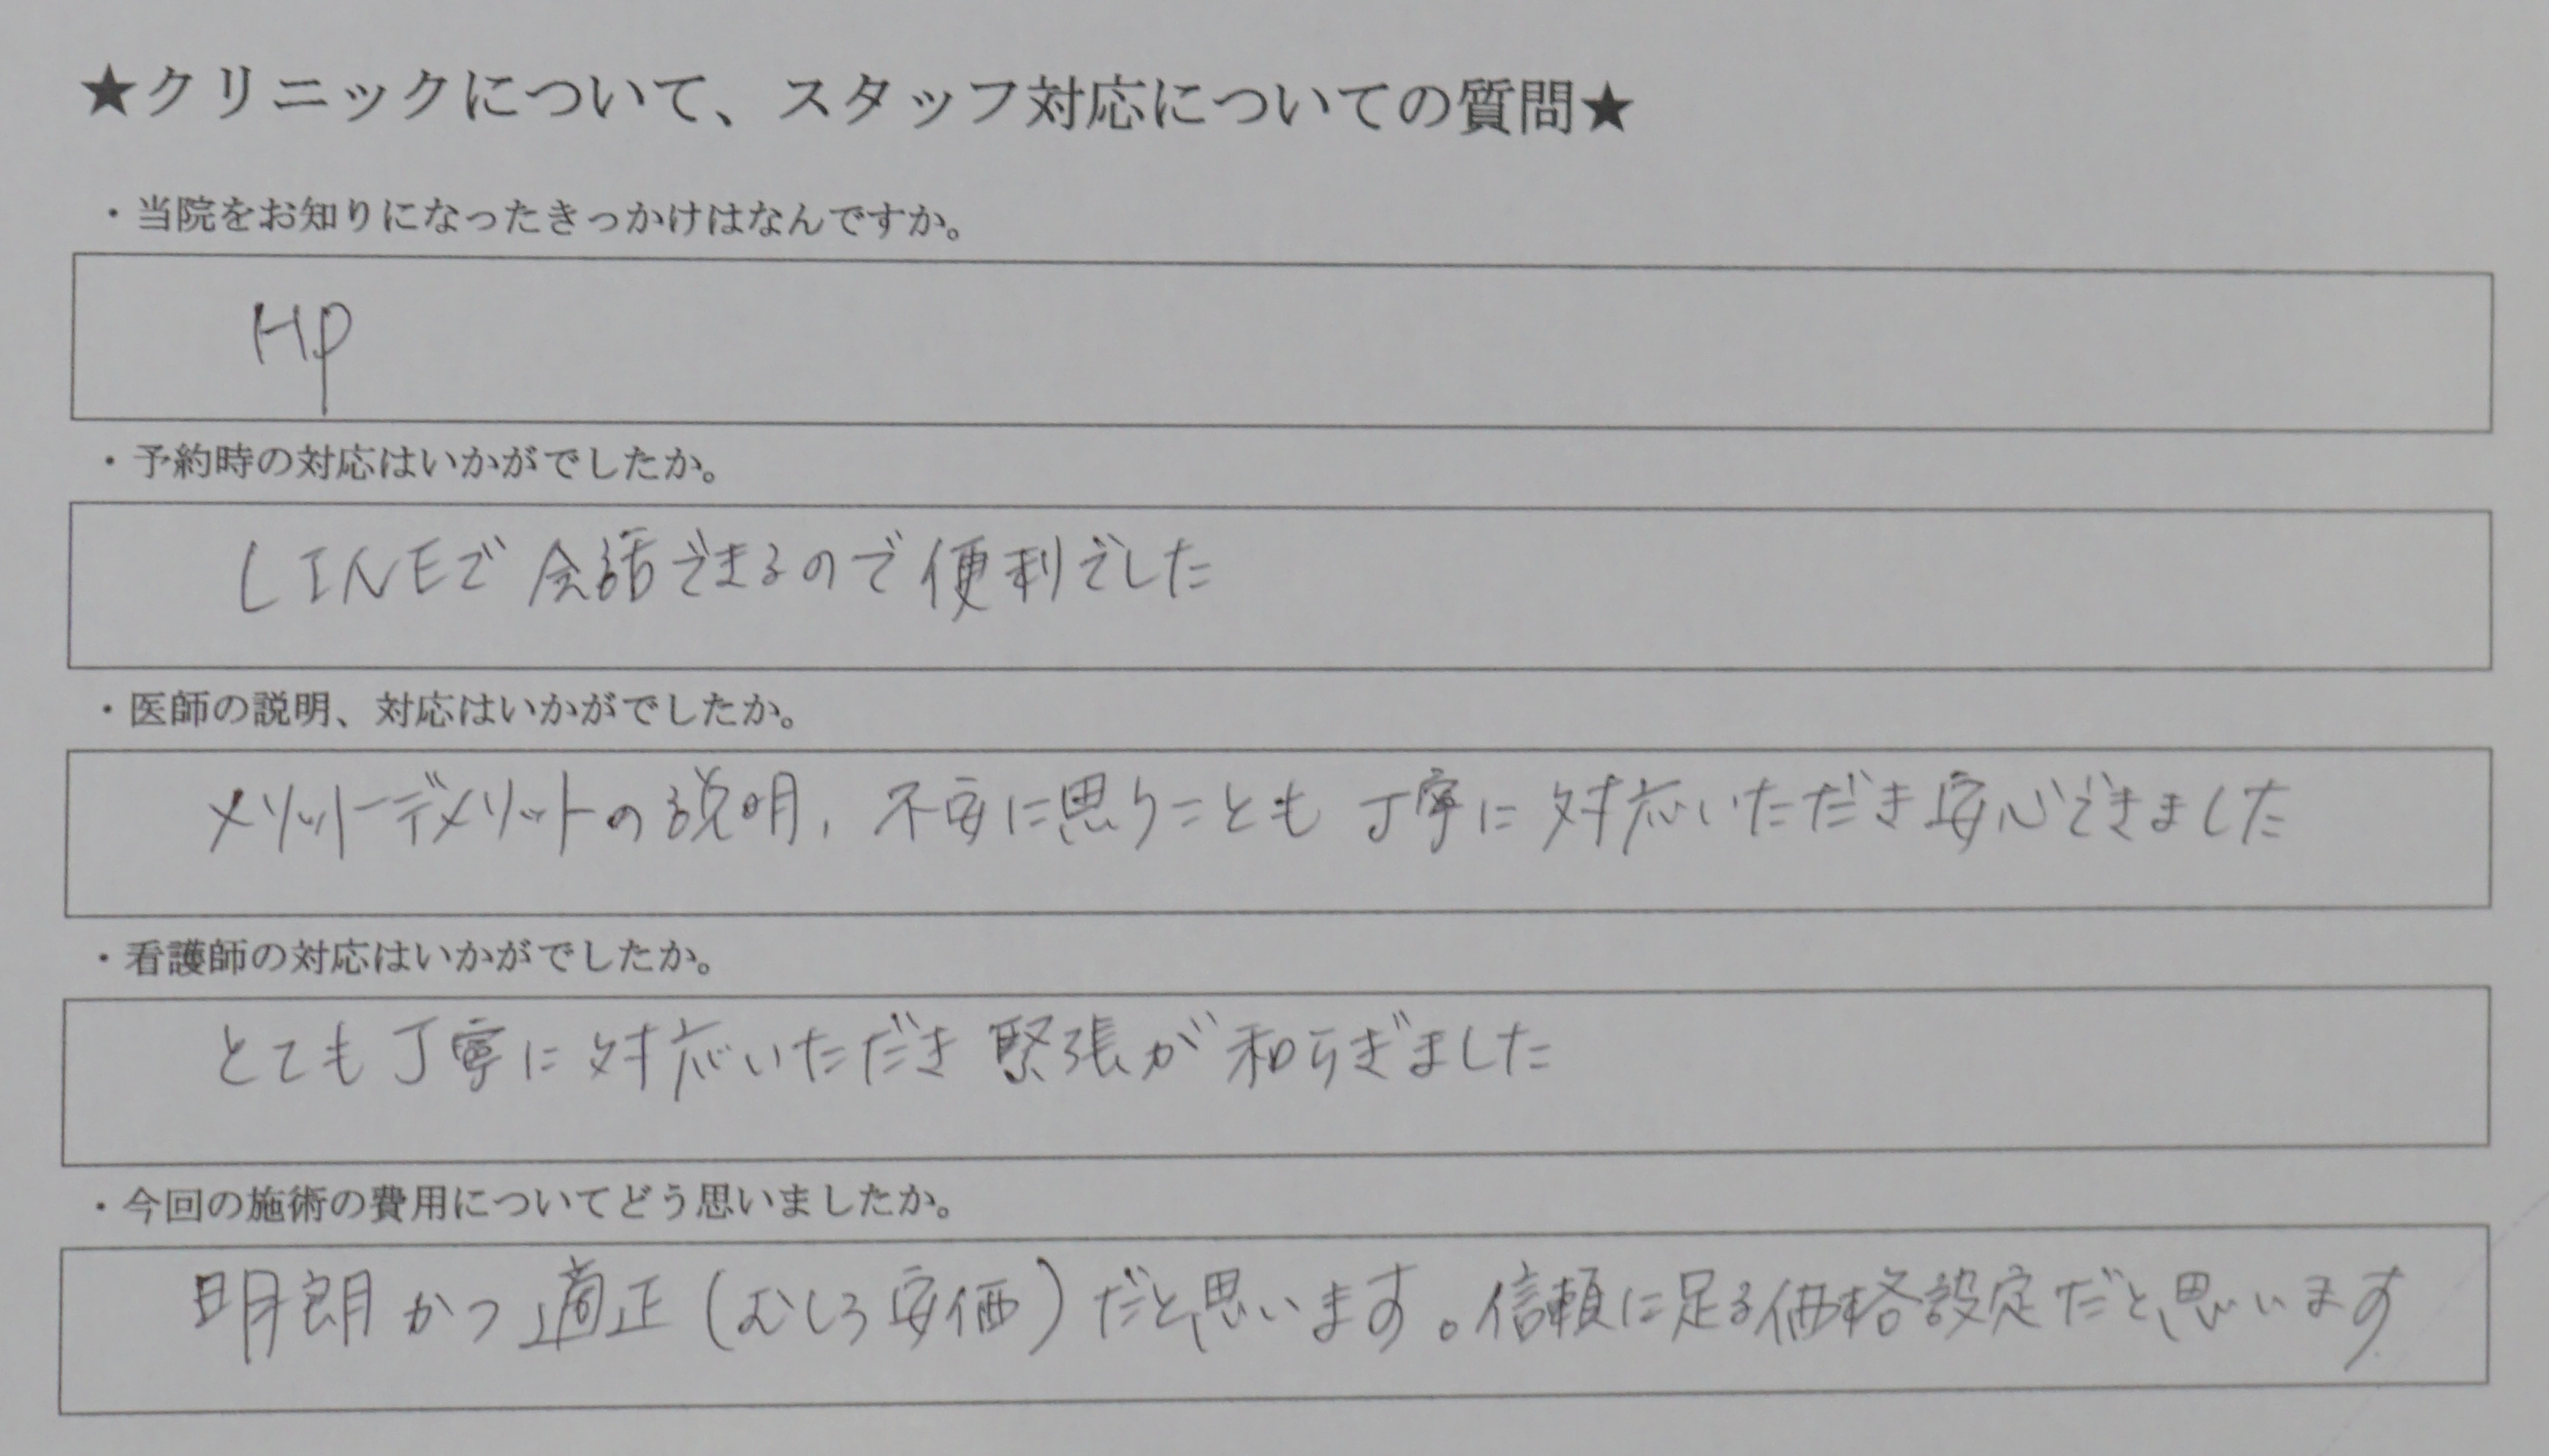 ★クリニックについて、スタッフ対応についての質問★
・当院をお知りになったきっかけはなんですか。
HP
・予約時の対応はいかがでしたか。
LINEで会話できるので便利でした
・医師の説明、対応はいかがでしたか。
メリット―デメリットの説明、不安に思うことも丁寧に対応いただき安心できました
・看護師の対応はいかがでしたか。
とても丁寧に対応いただき緊張が和らぎました
・今回の施術の費用についてどう思いましたか。
明朗かつ適正(むしろ安価)だと思います。信頼に足る価格設定だと思います